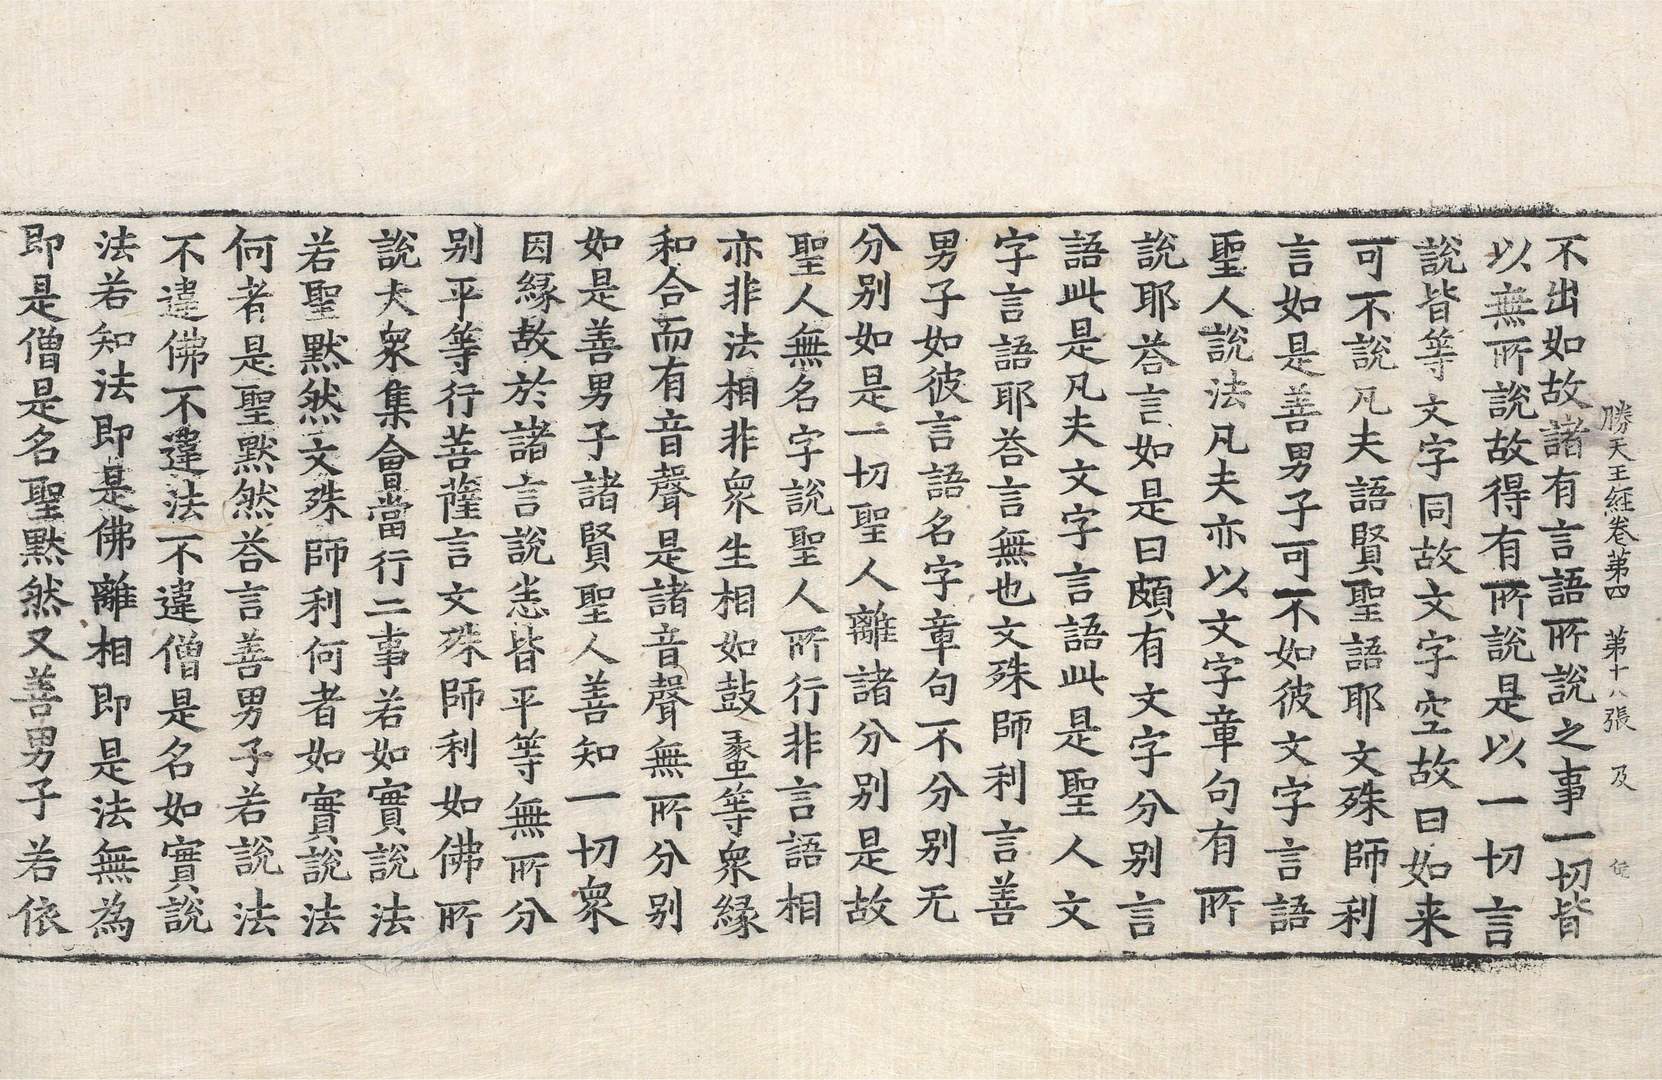 勝天王経巻第四 第十八張 及
不出如故諸有言語所說之事一切皆
以無所說故得有所說是以一切言
說皆等文字同故文字空故曰如来
可不說凡夫語賢聖語耶文殊師利
言如是善男子可不如彼文字言語
聖人說法凡夫亦以文字章句有所
說耶荅言如是曰頗有文字分別言
語此是凡夫文字言語此是聖人文
字言語耶荅言無也文殊師利言善
男子如彼言語名字章句不分別无
分別如是一切聖人離諸分別是故
聖人無名字說聖人所行非言語相
亦非法相非衆生相如鼓䗍等衆緣
和合而有音聲是諸音聲無所分別
如是善男子諸賢聖人善知一切衆
因緣故於諸言說悉皆平等無所分
別平等行菩薩言文殊師利如佛所
說大衆集會當行二事若如實說法
若聖默然文殊師利何者如實說法
何者是聖默然荅言善男子若說法
不違佛不違法不違僧是名如實說
法若知法即是佛離相即是法無為
即是僧是名聖默然又善男子若依